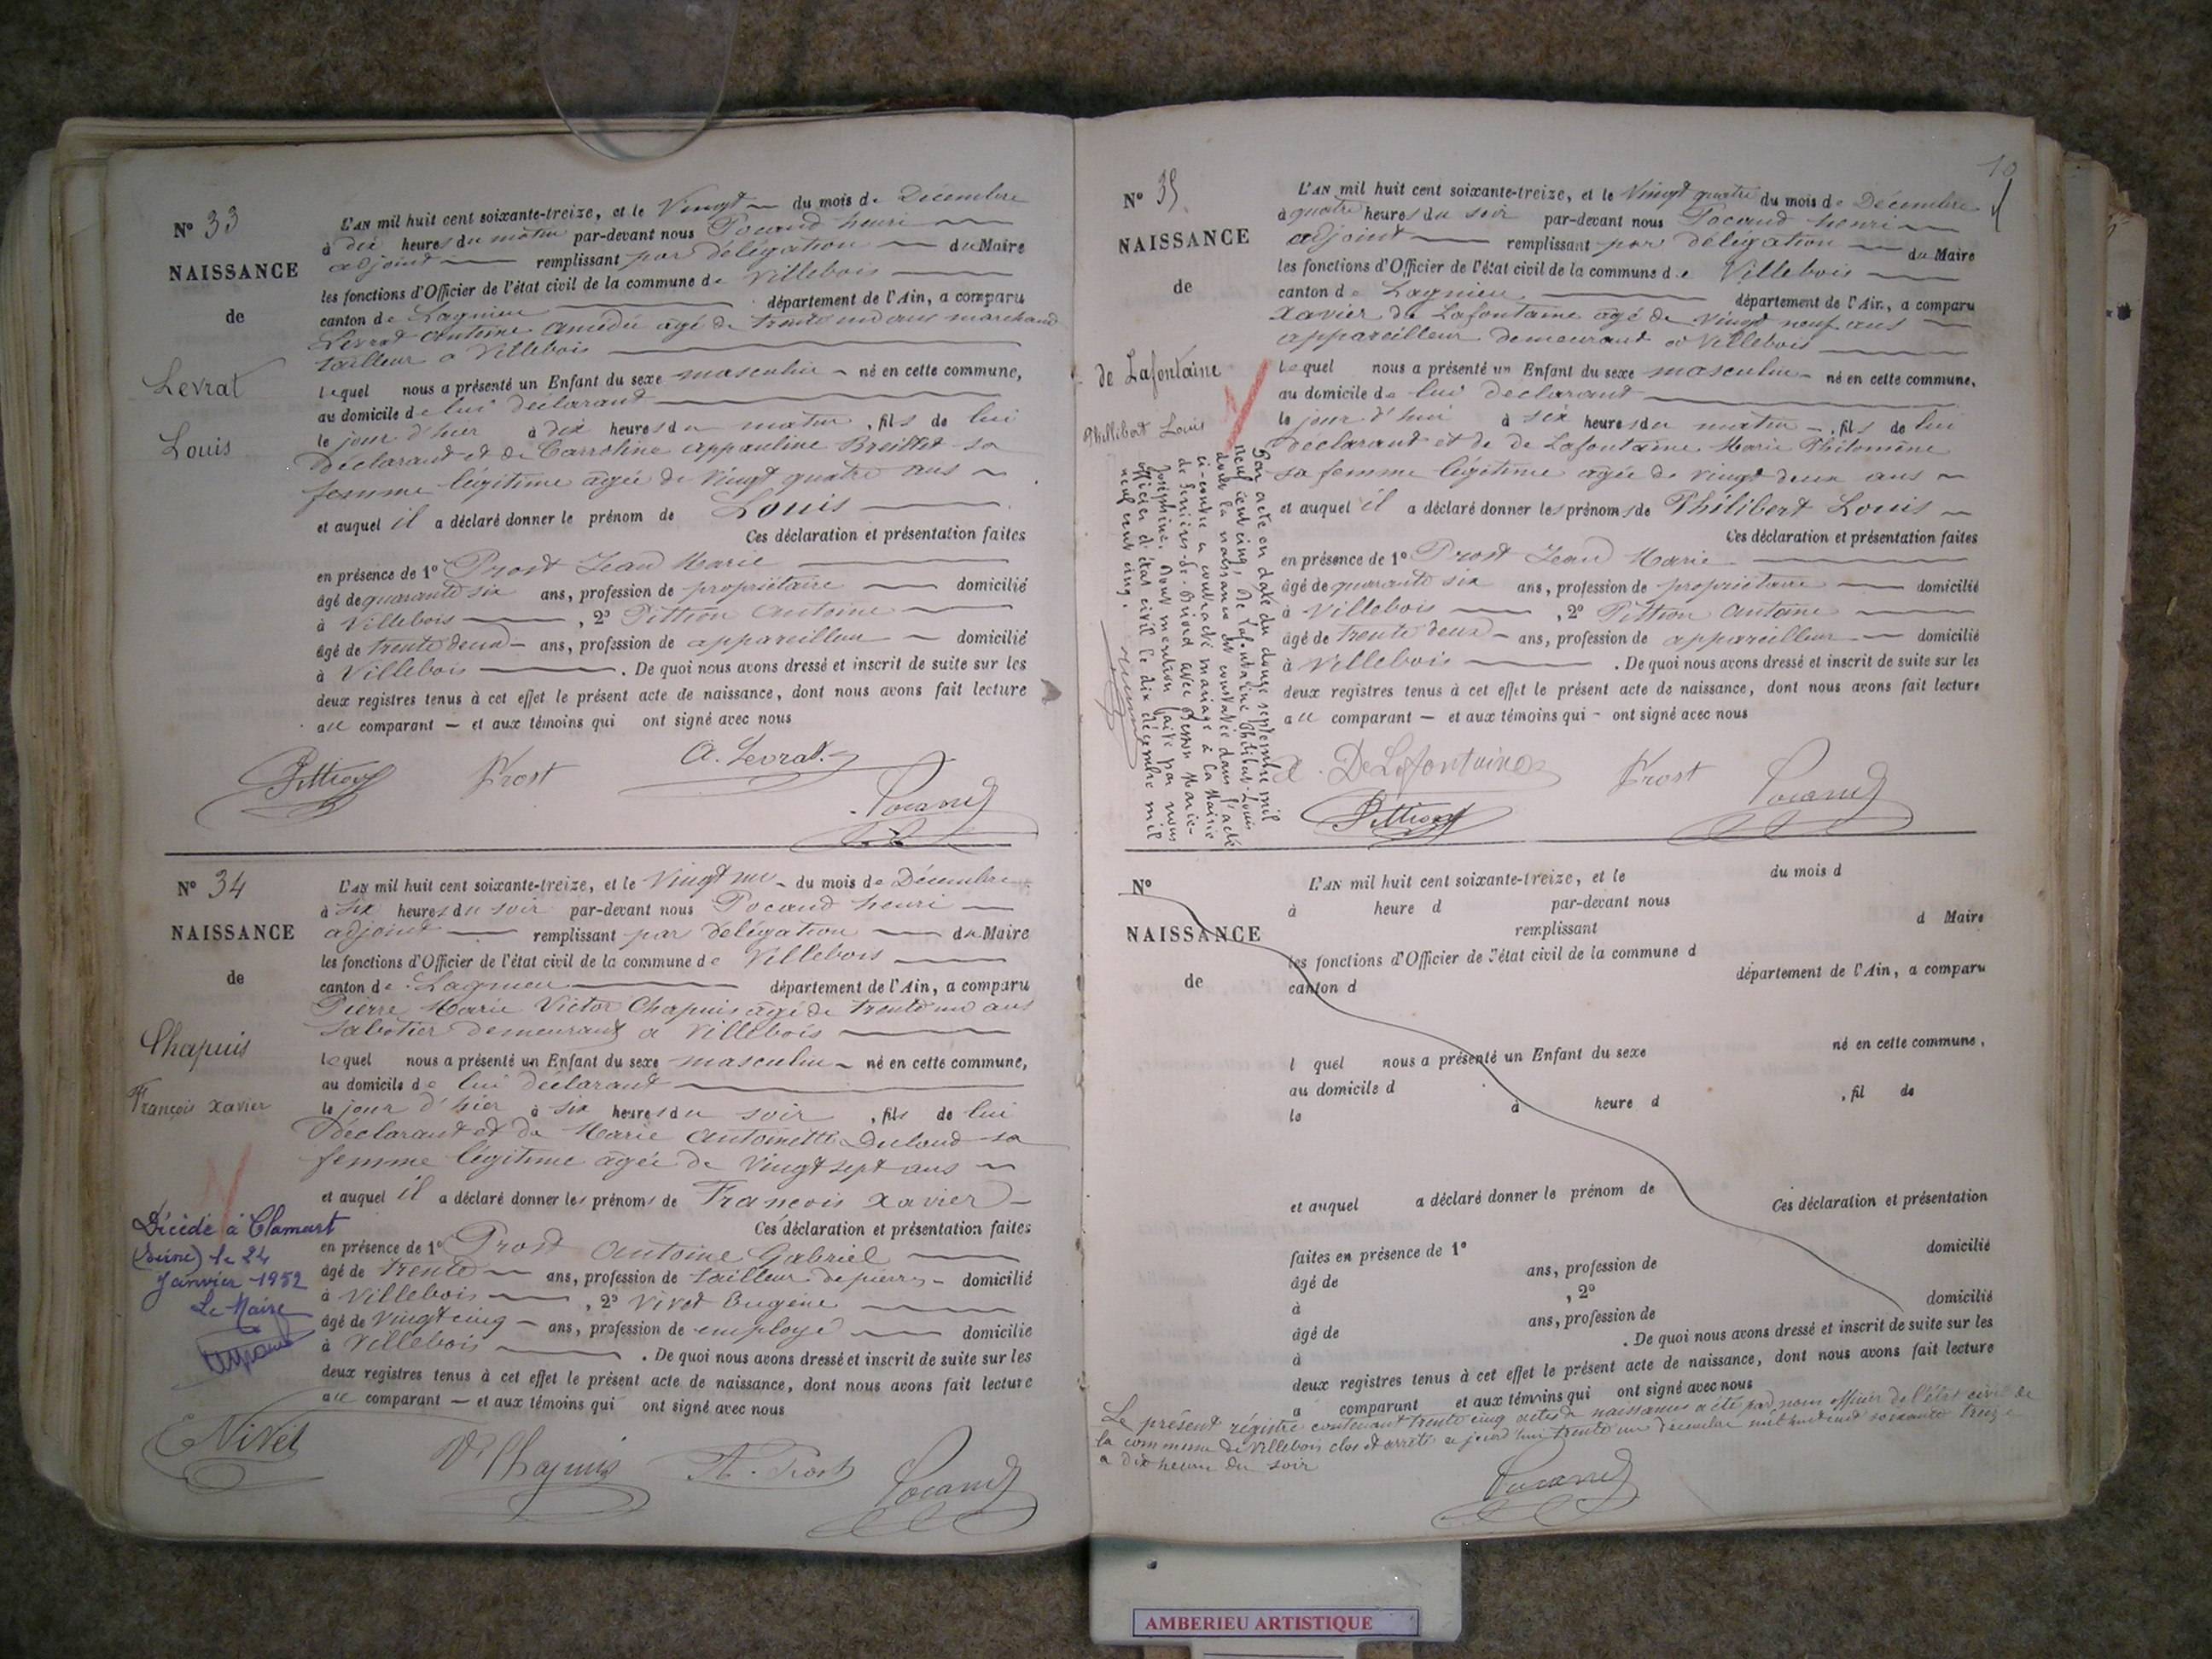 N° 33
NAISSANCE
de
Levrat
Louis
L'AN mil huit cent soixante-treize, et le Vingt du mois de Décembre
à dix heures du matin par-devant nous Pocand henri
adjoint remplissant par délégation du Maire
les fonctions d'Officier de l'état civil de la commune de Villebois
canton de Lagnieu département de l'Ain, a comparu
Levrat Antoine Amédée âgé de trente un ans marchand
tailleur à Villebois
lequel nous a présenté un Enfant du sexe masculin né en cette commune,
au domicile de lui déclarant
le jour d'hier à dix heures du matin, fils de lui
Déclarant et de Carroline Appauline sa
femme légitime agée de Vingt quatre ans
et auquel il a déclaré donner le prénom de Louis
Ces déclaration et présentation faites
en présence de 1° Prost Jean Marie
âgé de quarante six ans, profession de propriétaire domicilié
à Villebois, 2° Pittion Antoine
âgé de trente deux ans, profession de appareilleur domicilié
à Villebois. De quoi nous avons dressé et inscrit de suite sur les
deux registres tenus à cet effet le présent acte de naissance, dont nous avons fait lecture
au comparant et aux témoins qui ont signé avec nous
Pittion Prost A. Levrat
Pocand
N° 34
NAISSANCE
de
Chapuis
François Xavier
Décédé à Clamart
(Seine) le 24
Janvier 1952
Le Maire
L'AN mil huit cent soixante-treize, et le Vingt un du mois de Décembre
à six heures du soir par-devant nous Pocand henri
adjoint remplissant par délégation du Maire
les fonctions d'Officier de l'état civil de la commune de Villebois
canton de Lagnieu département de l'Ain, a comparu
Pierre Marie Victor Chapuis agé de trente un ans
sabotier demeurant à Villebois
lequel nous a présenté un Enfant du sexe masculin né en cette commune,
au domicile de lui déclarant
le jour d'hier à six heures du soir, fils de lui
Déclarant et de Marie Antoinette sa
femme légitime agée de Vingt sept ans
et auquel il a déclaré donner les prénoms de François Xavier
Ces déclaration et présentation faites
en présence de 1° Prost Antoine Gabriel
âgé de trente ans, profession de tailleur de pierres domicilié
à Villebois, 2° Nivet Eugène
âgé de Vingt cinq ans, profession de employé domicilié
à Villebois. De quoi nous avons dressé et inscrit de suite sur les
deux registres tenus à cet effet le présent acte de naissance, dont nous avons fait lecture
au comparant et aux témoins qui ont signé avec nous
E Nivet Vr Chapuis A. Prost Pocand
10
N° 35
NAISSANCE
de
de Lafontaine
Philibert Louis
Par acte en date du douze septembre mil
neuf cent cinq, De Lafontaine Philibert-Louis
dont la naissance est constatée dans l'acte
ci-contre a contracté mariage à la Mairie
de Serrières-de-Briord avec Besson Marie-
Joséphine. Dont mention faite par nous
officier d'état civil le dix décembre mil
neuf cent cinq.
L'AN mil huit cent soixante-treize, et le Vingt quatre du mois de Décembre
à quatre heures du soir par-devant nous Pocand henri
adjoint remplissant par délégation du Maire
les fonctions d'Officier de l'état civil de la commune de Villebois
canton de Lagnieu département de l'Ain, a comparu
Xavier de Lafontaine agé de Vingt neuf ans
appareilleur demeurant à Villebois
lequel nous a présenté un Enfant du sexe masculin né en cette commune,
au domicile de lui déclarant
le jour d'hui à six heures du matin, fils de lui
déclarant et de de Lafontaine Marie Philomène
sa femme légitime agée de vingt deux ans
et auquel il a déclaré donner les prénoms de Philibert Louis
Ces déclaration et présentation faites
en présence de 1° Prost Jean Marie
âgé de quarante six ans, profession de propriétaire domicilié
à Villebois, 2° Pittion Antoine
âgé de trente deux ans, profession de appareilleur domicilié
à Villebois. De quoi nous avons dressé et inscrit de suite sur les
deux registres tenus à cet effet le présent acte de naissance, dont nous avons fait lecture
au comparant et aux témoins qui ont signé avec nous
DeLafontaine Prost Pocand
Pittion
N°
NAISSANCE
de
L'AN mil huit cent soixante-treize, et le du mois d
à heure d par-devant nous
remplissant d Maire
les fonctions d'Officier de l'état civil de la commune d
canton d département de l'Ain, a comparu
l quel nous a présenté un Enfant du sexe né en cette commune,
au domicile d
le à heure d , fil de
et auquel a déclaré donner le prénom de
Ces déclaration et présentation
faites en présence de 1°
âgé de ans, profession de domicilié
à , 2°
âgé de ans, profession de domicilié
à . De quoi nous avons dressé et inscrit de suite sur les
deux registres tenus à cet effet le présent acte de naissance, dont nous avons fait lecture
a comparant et aux témoins qui ont signé avec nous
Le présent régistre contenant trente cinq actes de naissances a été par nous officier de l'état civil de
la commune de Villebois clos et arrêté ce jourd'hui trente un décembre mil huit cent soixante treize
à dix heures du soir
Pocand
AMBERIEU ARTISTIQUE